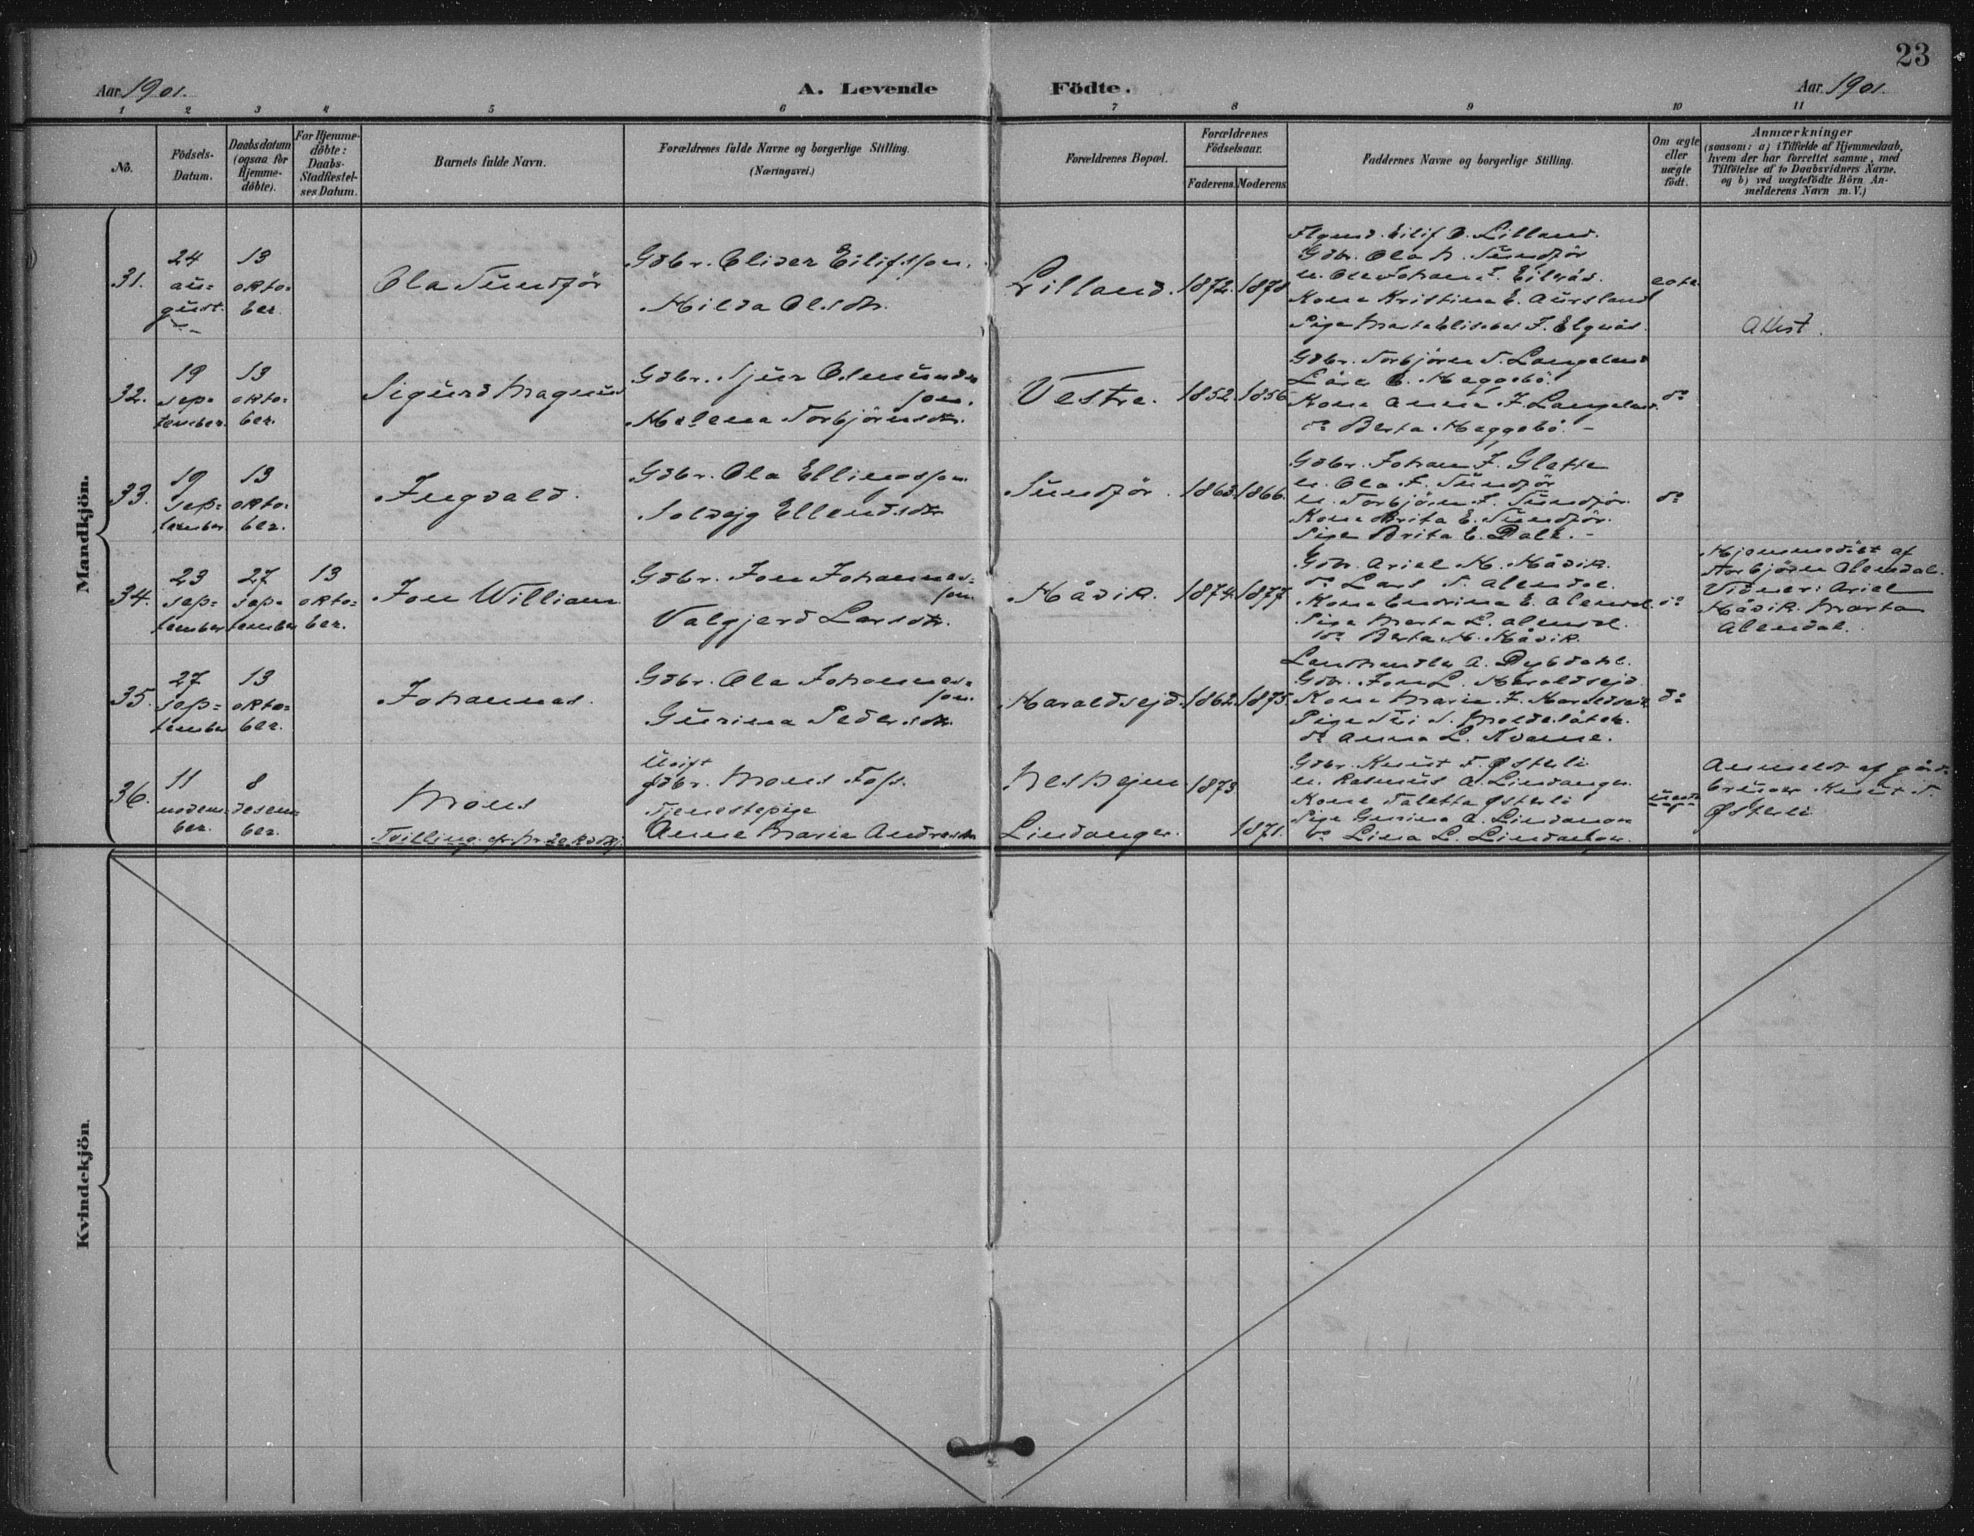 23
Aar 1901.
A. Levende Födte.
Aar 1901.
1 2 3 4 5 6 7 8 9 10 11
No.
Födsels-
Datum.
Daabsdatum
(ogsaa for
Hjemme-
döbte).
For Hjemme-
döbte:
Daabs-
Stadfæstel-
ses Datum.
Barnets fulde Navn.
Forældrenes fulde Navne og borgerlige Stilling.
(Næringsvei.)
Forældrenes Bopæl.
Forældrenes
Födselsaar.
Faderens. Moderens.
Faddernes Navne og borgerlige Stilling.
Om ægte
eller
uægte
födt.
Anmærkninger
(saasom: a) i Tilfælde af Hjemmedaab,
hvem der har forrettet samme, med
Tilföielse af to Daabsvidners Navne.
og b) ved uægtefödte Börn An-
melderens Navn m. V.)
Mandkjön.
31.
24
au-
gust.
13
okto-
ber.
Ola Sundför
Gdbr. Eilifsson.
Hilda Olsdtr.
Lilland.
1872. 1878
Eilif O. Lilland.
Gdbr. Ola Sundför
Kona Kristina E. Aursland
egte
Attest.
32.
19
sep-
tember.
13
okto-
ber.
Sigurd Magnus
Gdbr. Sjur Osmunds-
son.
Helena Torbjörnsdtr.
Vestre.
1852. 1856
Gdbr. Torbjörn T. Langeland
Heggebö.
Kona Anna T. Langeland.
do Berta Heggebö.
do
33.
19
sep-
tember
13
okto-
ber.
Ingvald.
Gdbr. Ola Ellingsson.
Solveig Ellendsdtr
Sundför.
1863. 1866.
Gdbr. Johan J. Glette
u. Ola J. Sundför
u. Torbjörn J. Sundför.
Kona Brita E. Sundför.
Pige Brita E. Dale.
do
34.
23
sep-
tember
27
sep-
tember
13
okto-
ber.
Jon William
Gdbr. Jon Johannes-
son.
Valgjerd Larsdtr.
Håvik.
1874. 1877
Gdbr. Ariel H. Håvik.
do Lars T. Alendal.
Kona Endrina E. Alendal.
Pige Marta L. Alendal.
do Berta H. Håvik.
do
Hjemmedöbt af
Torbjörn Alendal.
Vidner: Ariel
Håvik. Marta
Alendal.
35.
27
sep-
tember
13
okto-
ber.
Johannes.
Gdbr. Ola Johannes-
son.
Gurina Pedersdtr.
Haraldsejd.
1862. 1875.
Landhandler A. Dybdahl.
Gdbr. Jon L. Haraldsejd
Kona Maria J. Haraldseid
do Anna L. Kvame.
do
36.
11
novem-
ber.
8
desem-
ber.
Mons
Tvilling af Nr 20 Kvkj.
Ugift
gdbr. Mons
Tjenestepige
Anna Maria Andreasdtr
Neshejm
Lindanger.
1873.
1871.
Gdbr. Knut T. Østerli
u. Rasmus A. Lindanger.
Kona Taletta Østerli
Pige Gurina A. Lindanger
do Lina L. Lindanger.
uegte
Anmeldt af gård-
bruger Knut T.
Østerli
Kvindekjön.